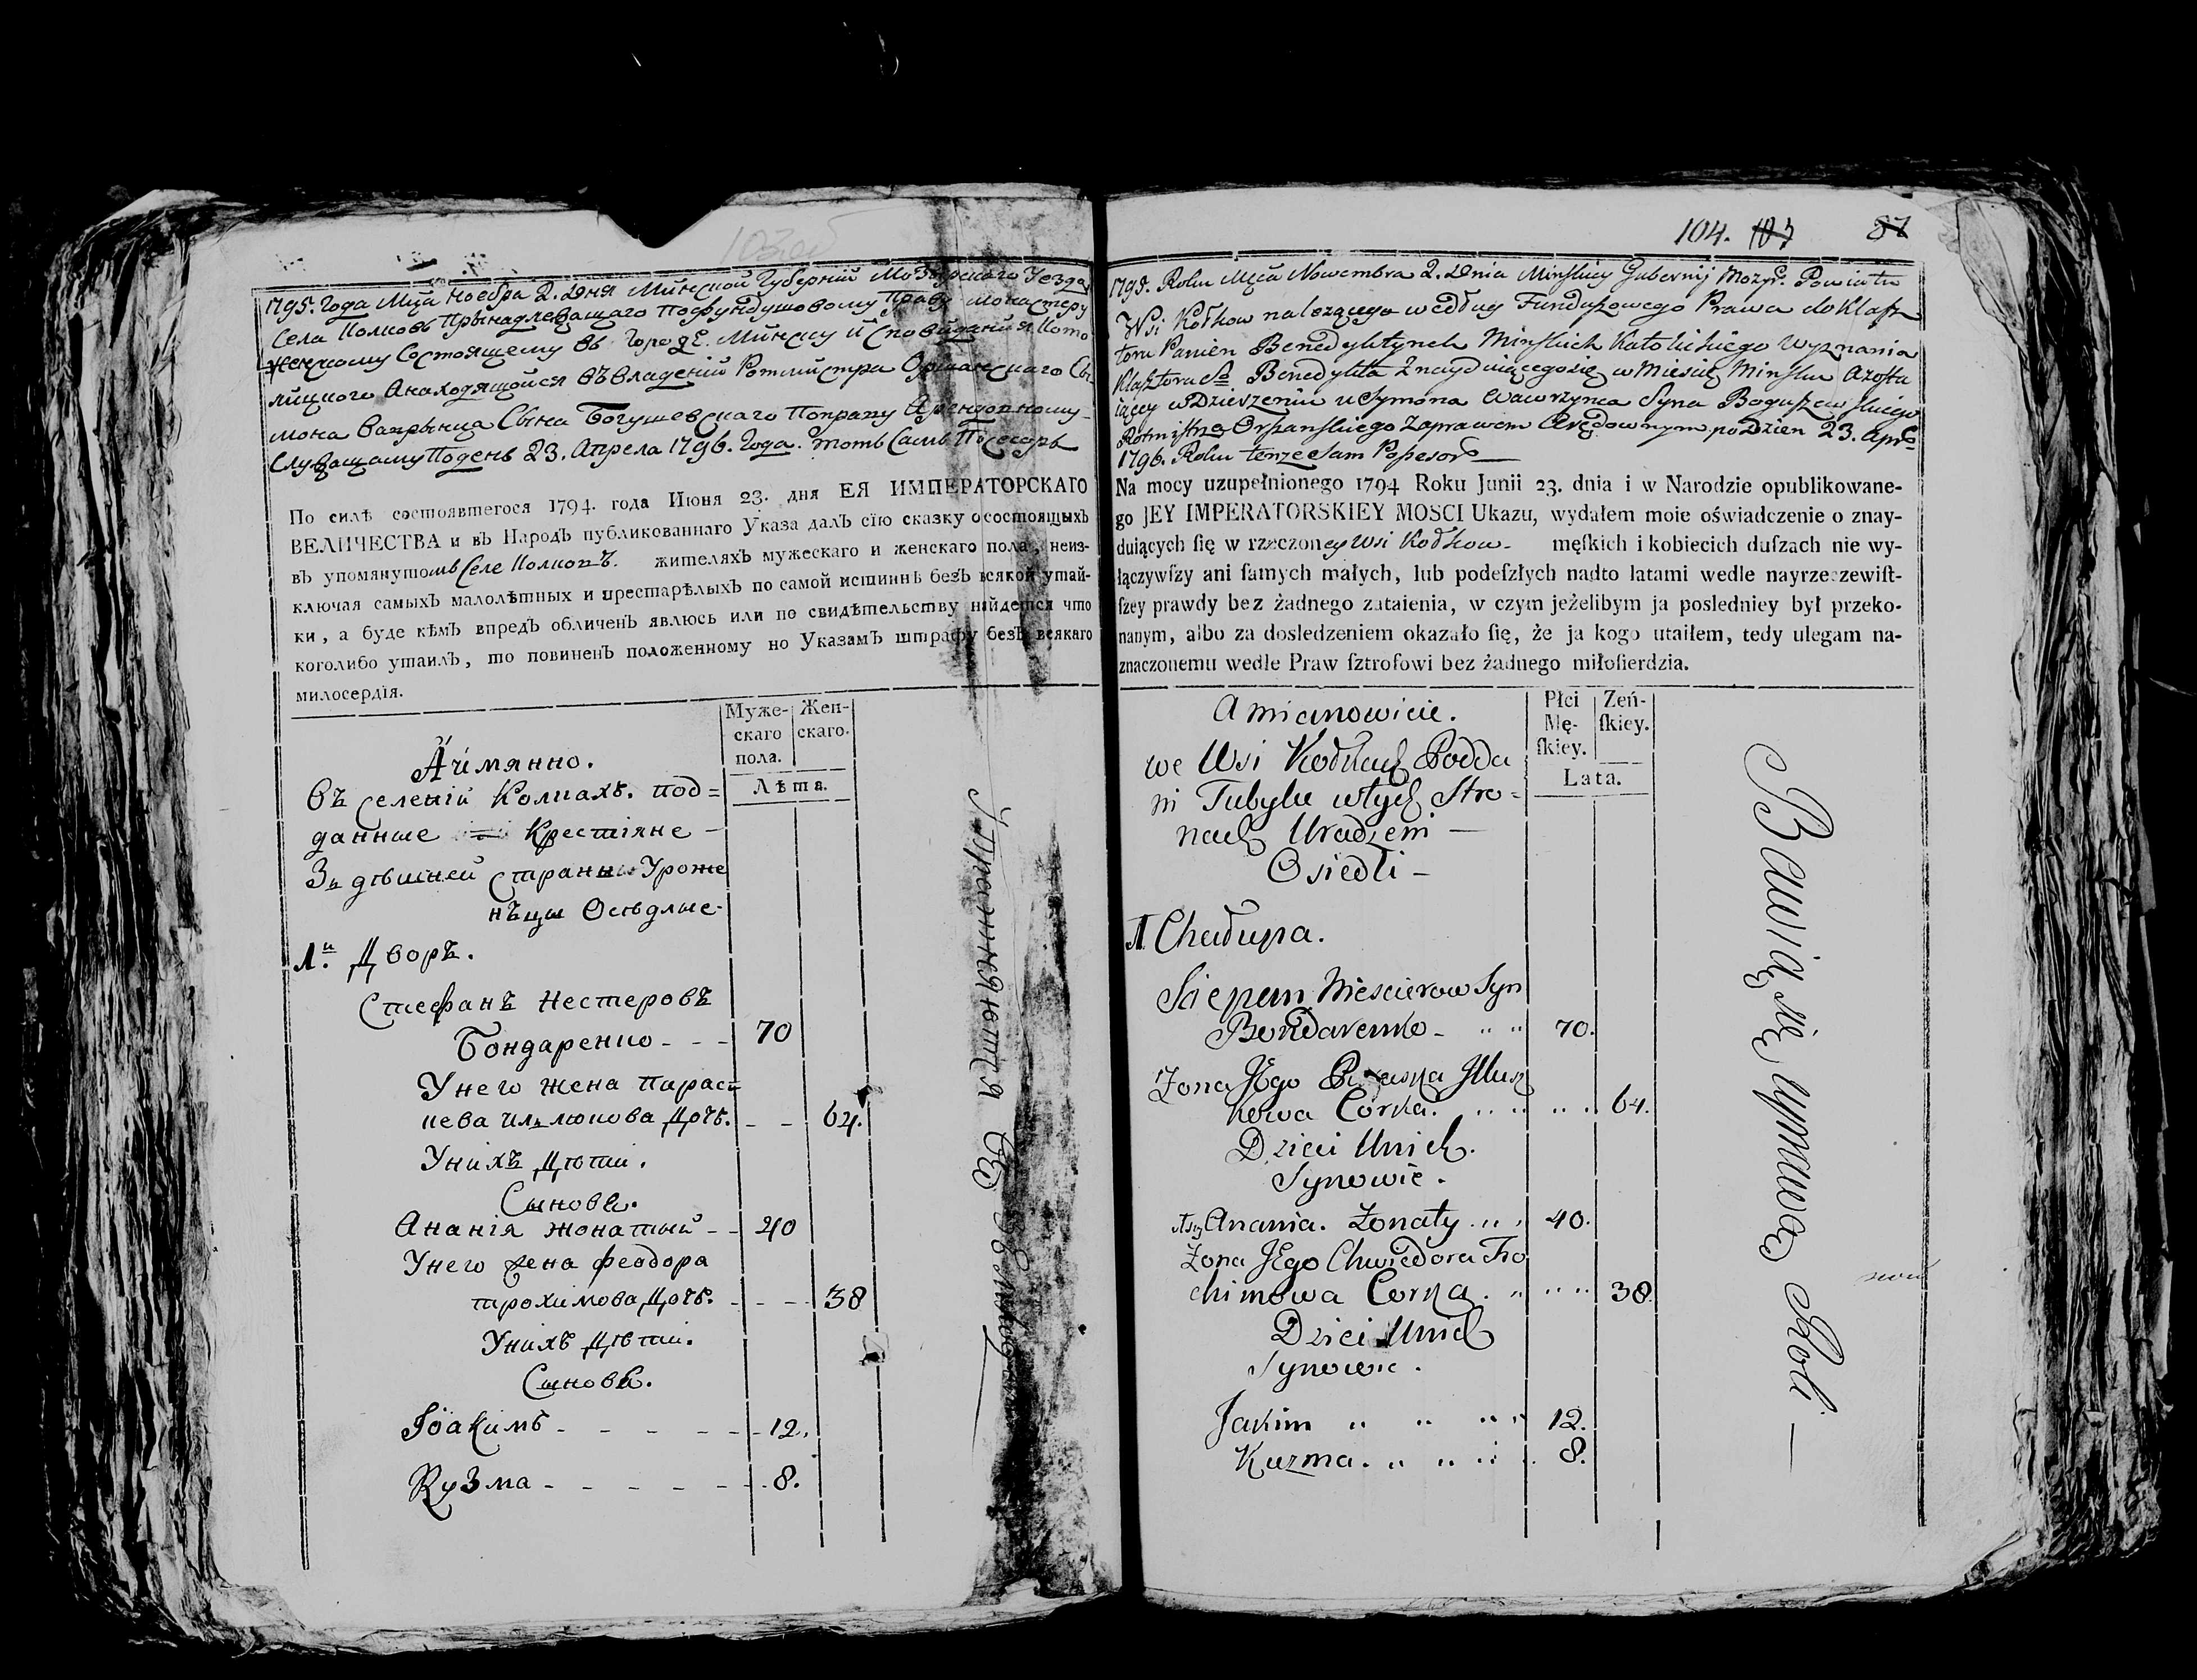 1795. Года Мца Ноебра 2. Дня Минской Губерній Мозырскаго Уезда
Села Колковъ Принадлежащаго пофундушовому Праву Монастеру
Женскому Состоящему въ Городе. Минску
лицкого Анаходящойся въ Владеній Ротмистра Оршанскаго Си-
мона Вавринца Сына Богушевскаго Поправу Арендовному
Служащему Подень 23. Апреля 1796. Года. тотъ Самъ Посесоръ
По силѣ состоявшегося 1794. года Июня 23. дня ЕЯ ИМПЕРАТОРСКАГО
ВЕЛИЧЕСТВА и въ Народъ публикованнаго Указа далъ сїю сказку осостоящыхъ
въ упомянутомъ Селе Колковъ. жителяхъ мужескаго и женскаго пола, неиз-
ключая самыхъ малолѣтныхъ и престарѣлыхъ по самой истиннѣ безъ всякой утай-
ки, а буде кѣмъ впредъ обличенъ явлюсь или по свидѣтельству найдется что
коголибо утаилъ, то повиненъ положенному по Указамъ штрафу безъ всякаго
милосердїя.
Муже-
скаго
пола.
Жен-
скаго.
Лѣта.
Аймянно.
Въ Селеній Колкахъ. под=
данные Крестіяне —
Здѣшней Страны Уроже
нѣцы Осѣдлые-
1.й Дворъ.
Стефанъ Нестеровъ
Бондаренко - - - 70
Унего жена Парас=
кева Илюкова Дочъ. - - 64.
Унихъ Дѣти.
Сынове.
Ананія жонатый - - 40
Унего жена Феодора
трохимова Дочъ. - - - 38
Унихъ Дѣти.
Сынове.
Іоакимъ - - - - - - 12.
Кузма - - - - - - - 8.
Упражняются въ Земледѣліи
104. 103 87
1795. Roku Mca Nowembra 2. Dnia Minskiey Gubernij Mozyr. Powiatu
Wsi Kołkow nalezącego według Funduszowego Prawa do Klasz
toru Panien Benedyktynek Minskich Katolickiego Wyznania
Klasztoru Sgo Benedykta Znayduiącego się w Miescie Minsku Azosta
iącey w Dzierzeniu u Symona Wawrzynca Syna Boguszewskiego
Rotmistrza Orszanskiego Zaprawem Arędownym po Dzien 23. Apr.
1796. Roku tenze Sam Possesor —
Na mocy uzupełnionego 1794 Roku Junii 23. dnia i w Narodzie opublikowane-
go JEY IMPERATORSKIEY MOSCI Ukazu, wydałem moie oświadczenie o znay-
duiących ſię w rzeczoney Wsi Kołkow - męſkich i kobiecich duſzach nie wy-
łączywſzy ani ſamych małych, lub podeſzłych nadto latami wedle nayrzeczewiſt-
ſzey prawdy bez żadnego zataienia, w czym jeżelibym ja posledniey był przeko-
nanym, albo za dosledzeniem okazało ſię, że ja kogo utaiłem, tedy ulegam na-
znaczonemu wedle Praw ſztrofowi bez żadnego miłoſierdzia.
Płci
Mę-
ſkiey.
Żeń-
ſkiey.
Lata.
Amianowicie.
we Wsi Kołkach Podda
ni Tubylce wtych Stro=
nach Uradzeni —
Osiedli —
1 Chałupa.
Sciepan Niescierow Syn
Bondarenko - 70.
Żona Jego Paraska Illusz
kowa Corka. 64.
Dzieci Unich.
Synowie.
1szy Anania. Żonaty 40.
Żona Jego Chwiedora Tro
chimowa Corka. 38.
Dzieci Unich
Synowie.
Jakim 12.
Kuzma. 8.
Bawią się uprawą Roli —